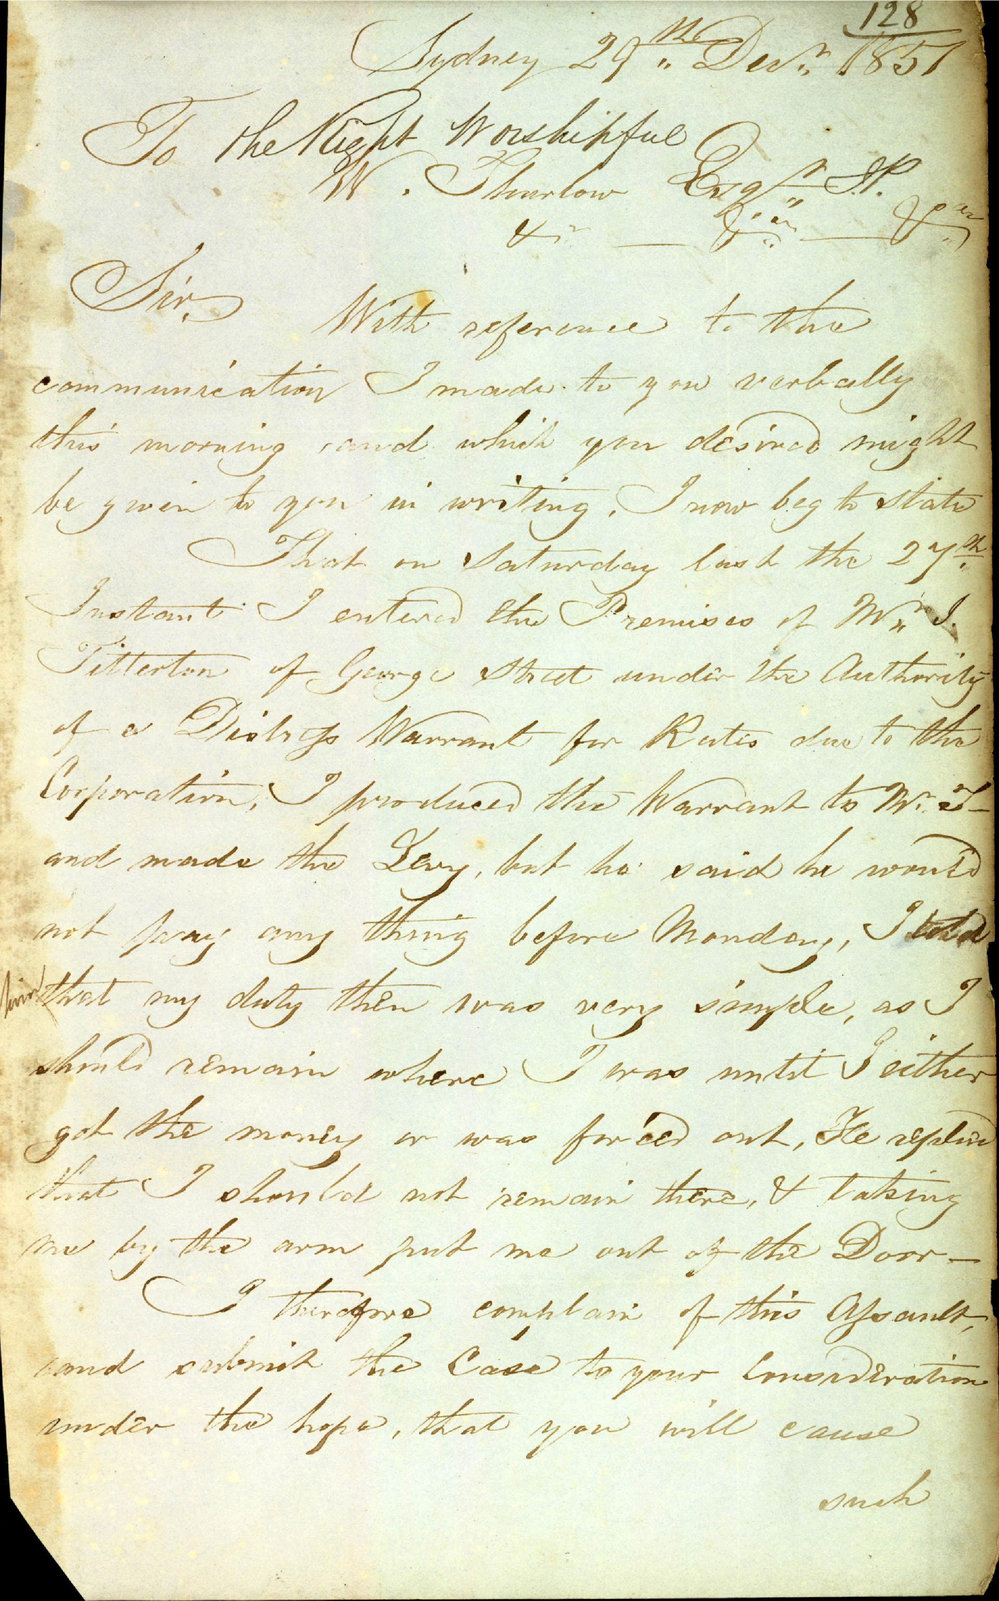 128
Sydney 29th Decr. 1851
To the Right Worshipful
W. Thurlow Esqr J.P.
&c — &c — &c
Sir,
With reference to the
communication I made to you verbally
this morning and which you desired might
be given to you in writing, I now beg to state
That on Saturday last the 27th
Instant I entered the Premises of Mr. J.
Titterton of George Street under the Authority
of a Distress Warrant for Rates due to the
Corporation, I produced the Warrant to Mr. T—
and made the Levy, but he said he would
not pay any thing before Monday, I told
him that my duty then was very simple, as I
should remain where I was until I either
got the money or was forced out, He replied
that I should not remain there, & taking
me by the arm put me out of the Door —
I therefore complain of this Assault,
and submit the Case to your Consideration
under the hope, that you will cause
such